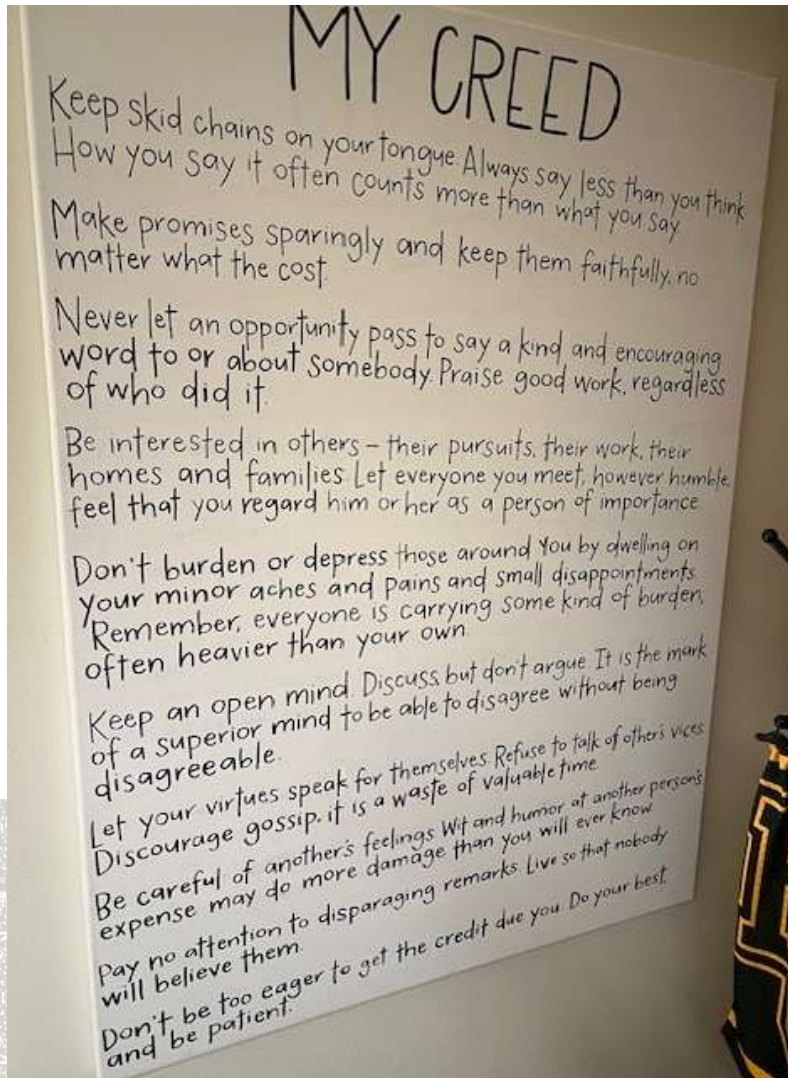 MY CREED
Keep skid chains on your tongue. Always say less than you think
How you say it often counts more than what you say
Make promises sparingly and keep them faithfully, no
matter what the cost.
Never let an opportunity pass to say a kind and encouraging
word to or about somebody. Praise good work, regardless
of who did it.
Be interested in others – their pursuits, their work, their
homes and families Let everyone you meet, however humble,
feel that you regard him or her as a person of importance
Don't burden or depress those around you by dwelling on
your minor aches and pains and small disappointments
Remember, everyone is carrying some kind of burden,
often heavier than your own.
Keep an open mind. Discuss, but don't argue. It is the mark
of a superior mind to be able to disagree without being
disagreeable.
Let your virtues speak for themselves. Refuse to talk of other's vices
Discourage gossip, it is a waste of valuable time
Be careful of another's feelings Wit and humor at another person's
expense may do more damage than you will ever know
Pay no attention to disparaging remarks. Live so that nobody
will believe them.
Don't be too eager to get the credit due you. Do your best,
and be patient.